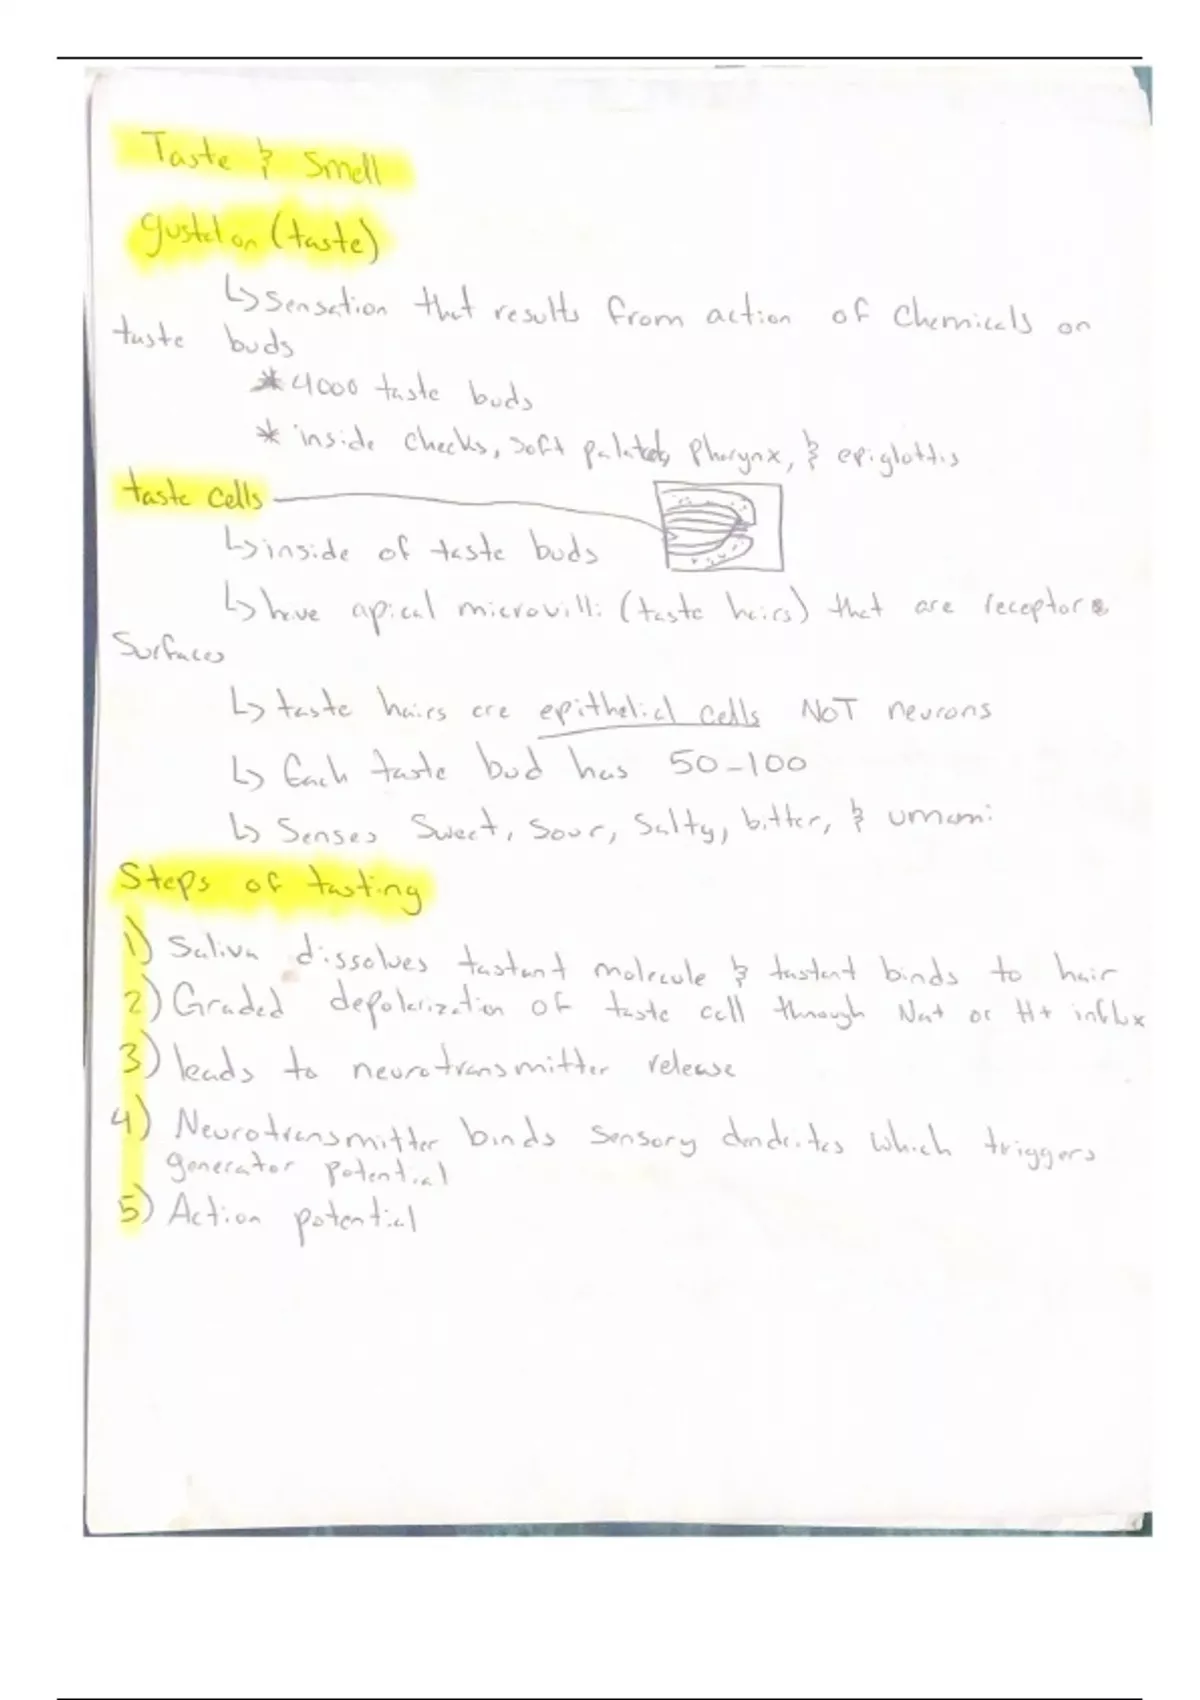 Taste & Smell
gustation (taste)
↳ sensation that results from action of chemicals on
taste buds
* 4000 taste buds
* inside cheeks, soft palate, pharynx, & epiglottis
taste cells
↳ inside of taste buds
↳ have apical microvilli (taste hairs) that are receptor
Surfaces
↳ taste hairs are epithelial cells NOT neurons
↳ Each taste bud has 50-100
↳ Senses Sweet, Sour, Salty, bitter, & umami
Steps of tasting
1) Saliva dissolves tastant molecule & tastant binds to hair
2) Graded depolarization of taste cell through Na+ or H+ influx
3) leads to neurotransmitter release
4) Neurotransmitter binds sensory dendrites which triggers
generator potential
5) Action potential